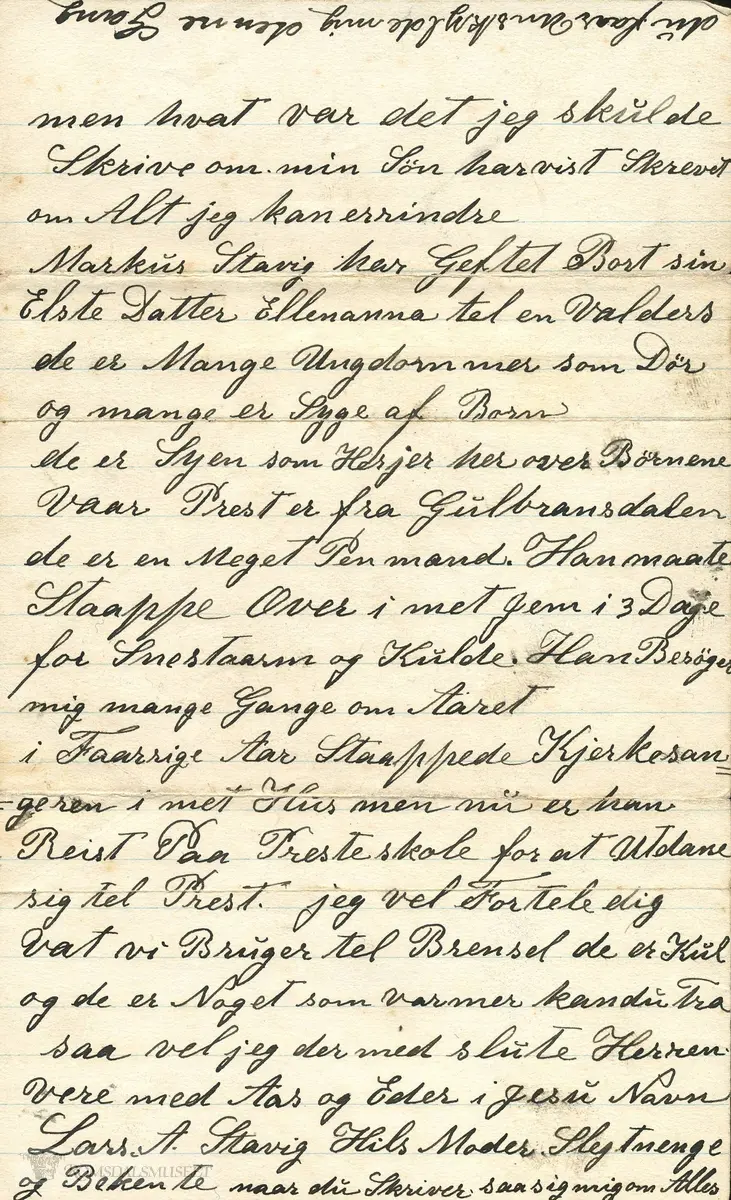 men hvat var det jeg skulde
Skrive om. min Søn har vist Skrevet
om Alt jeg kan errindre
Markus Stavig har Geftet Bort sin
Elste Datter Ellenanna tel en Valders
de er Mange Ungdommer som Dör
og mange er Syge af Born
de er Syen som Herjer her over Börnene
Vaar Prest er fra Gulbransdalen
de er en Meget Pen mand. Han maate
Staappe Over i met Jem i 3 Dage
for Snestaarm og Kulde. Han Besöger
mig mange Gange om Aaret
i Faarrige Aar Staappede Kjerkesan=
=geren i met Hus men nu er han
Reist Paa Presteskole for at Utdane
sig tel Prest. jeg vel Fortele dig
vat vi Bruger tel Brensel de er Kul
og de er Noget som varmer kan du Tra
saa vel jeg der med slute Herren
vere med Aas og Eder i Jesu Navn
Lars. A. Stavig Hils Moder Slegtnenge
og Bekente naar du Skriver saa sig mig om Alles
du faar Unskylde mig denne Gang
ROMSDALSMUSEET